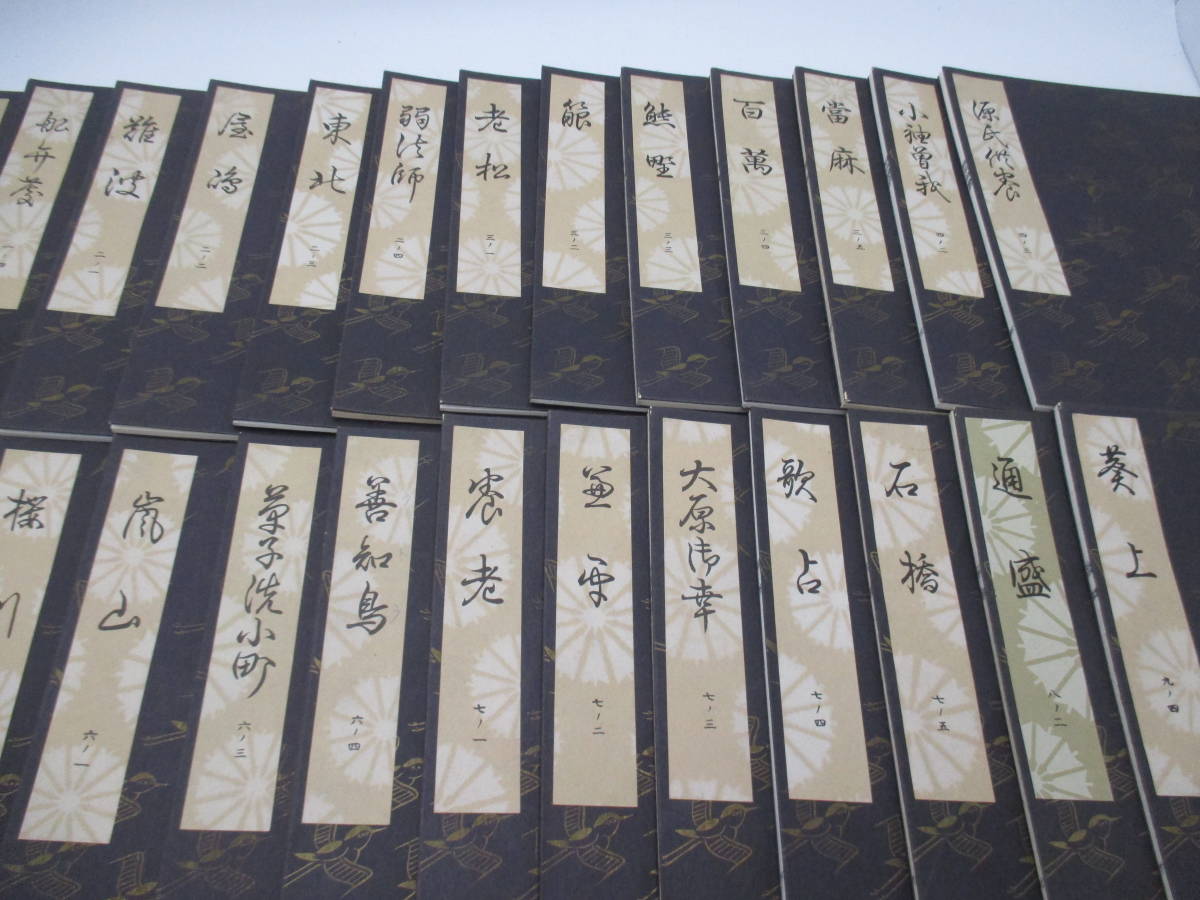 源氏供養
四ノ三
小袖曽我
四ノ二
當麻
三ノ五
百萬
三ノ四
熊野
三ノ三
箙
三ノ二
老松
三ノ一
弱法師
二ノ四
東北
二ノ三
屋嶋
二ノ二
難波
二ノ一
舩弁慶
一ノ四
葵上
九ノ四
通盛
八ノ二
石橋
七ノ五
歌占
七ノ四
大原御幸
七ノ三
兼平
七ノ二
養老
七ノ一
善知鳥
六ノ四
草子洗小町
六ノ三
嵐山
六ノ一